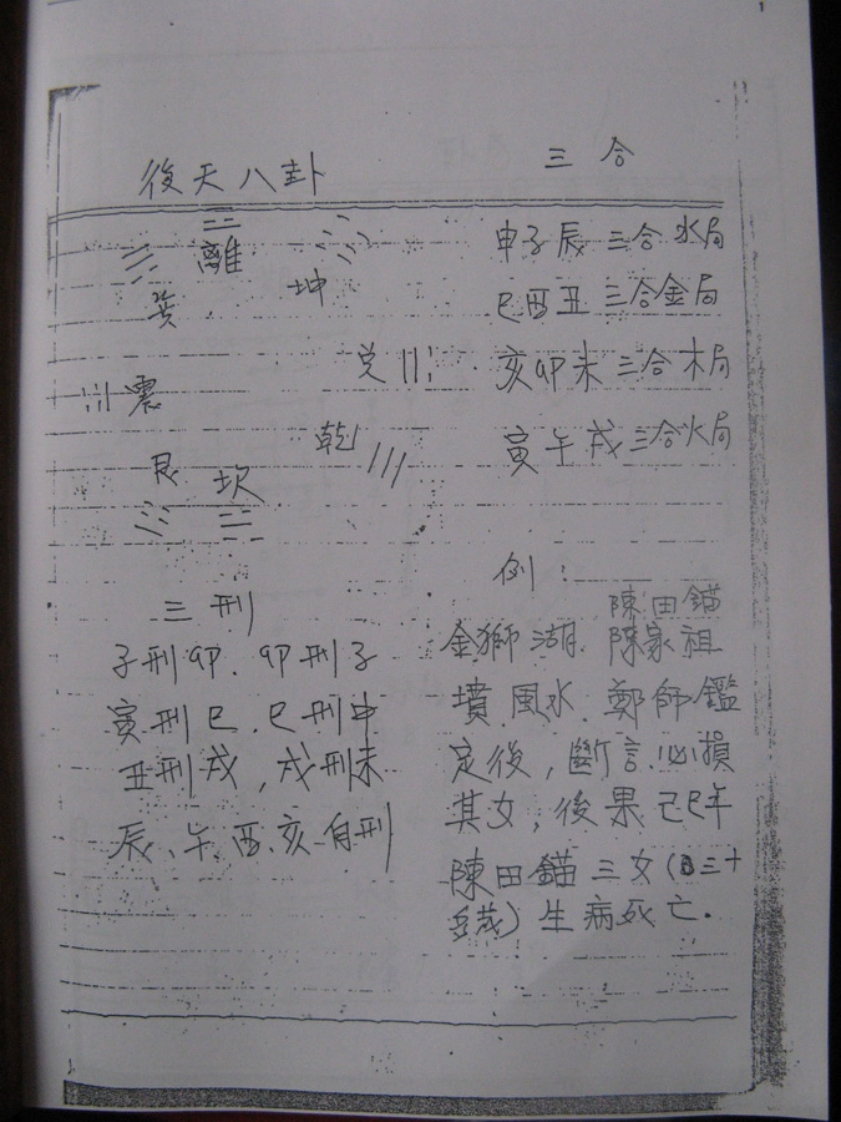 1
後天八卦
離
巽
坤
兌
震
乾
艮
坎
三刑
子刑卯.卯刑子
寅刑巳.巳刑申
丑刑戌,戌刑未
辰、午、酉、亥自刑
三合
申子辰三合水局
巳酉丑三合金局
亥卯未三合木局
寅午戌三合火局
例:
陳田錨
金獅湖.陳家祖
墳.風水.鄭師鑑
定後,斷言.必損
其女,後果己巳年
陳田錨三女(三十
多歲)生病死亡.